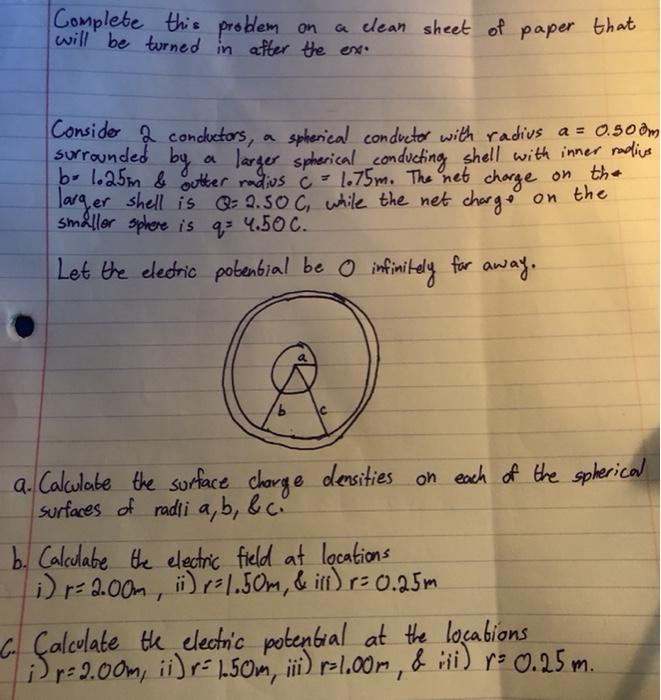 Complete this problem on a clean sheet of paper that
will be turned in after the
Consider 2 conductors, a spherical conductor with radius a = 0.500m
surrounded by a larger spherical conducting shell with inner radius
b= 1.25m & outter radius c = 1.75m. The net charge on the
larger shell is Q= 2.50 C, while the net charge on the
smaller sphere is q= 4.50C.
Let the electric potential be 0 infinitely far away.
a
b c
a. Calculate the surface charge densities on each of the spherical
surfaces of radii a, b, & c.
b. Calculate the electric field at locations
i) r= 2.00m, ii) r=1.50m, & iii) r= 0.25m
c. Calculate the electric potential at the locations
i) r= 2.00m, ii) r= 1.50m, iii) r=1.00m, & iii) r= 0.25 m.